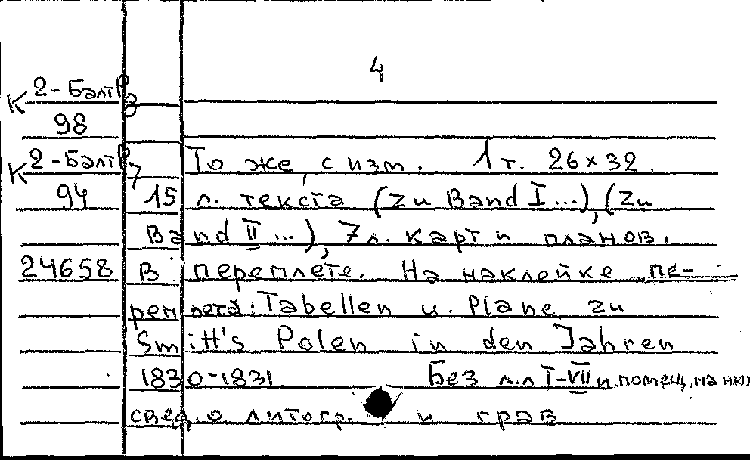 4
К 2-Балт/3
98
К 2-Балт/7 То же, с изм. 1 т. 26×32.
94 15 л. текста (zu Band I...), (zu
Band II...), 7 л. карт и планов.
24658 В переплете. На наклейке пе-
реплета: Tabellen u. Plane zu
Smitt's Polen in den Jahren
1830-1831 Без л.л I-VII и помещ. на них
свед. о литогр. и грав